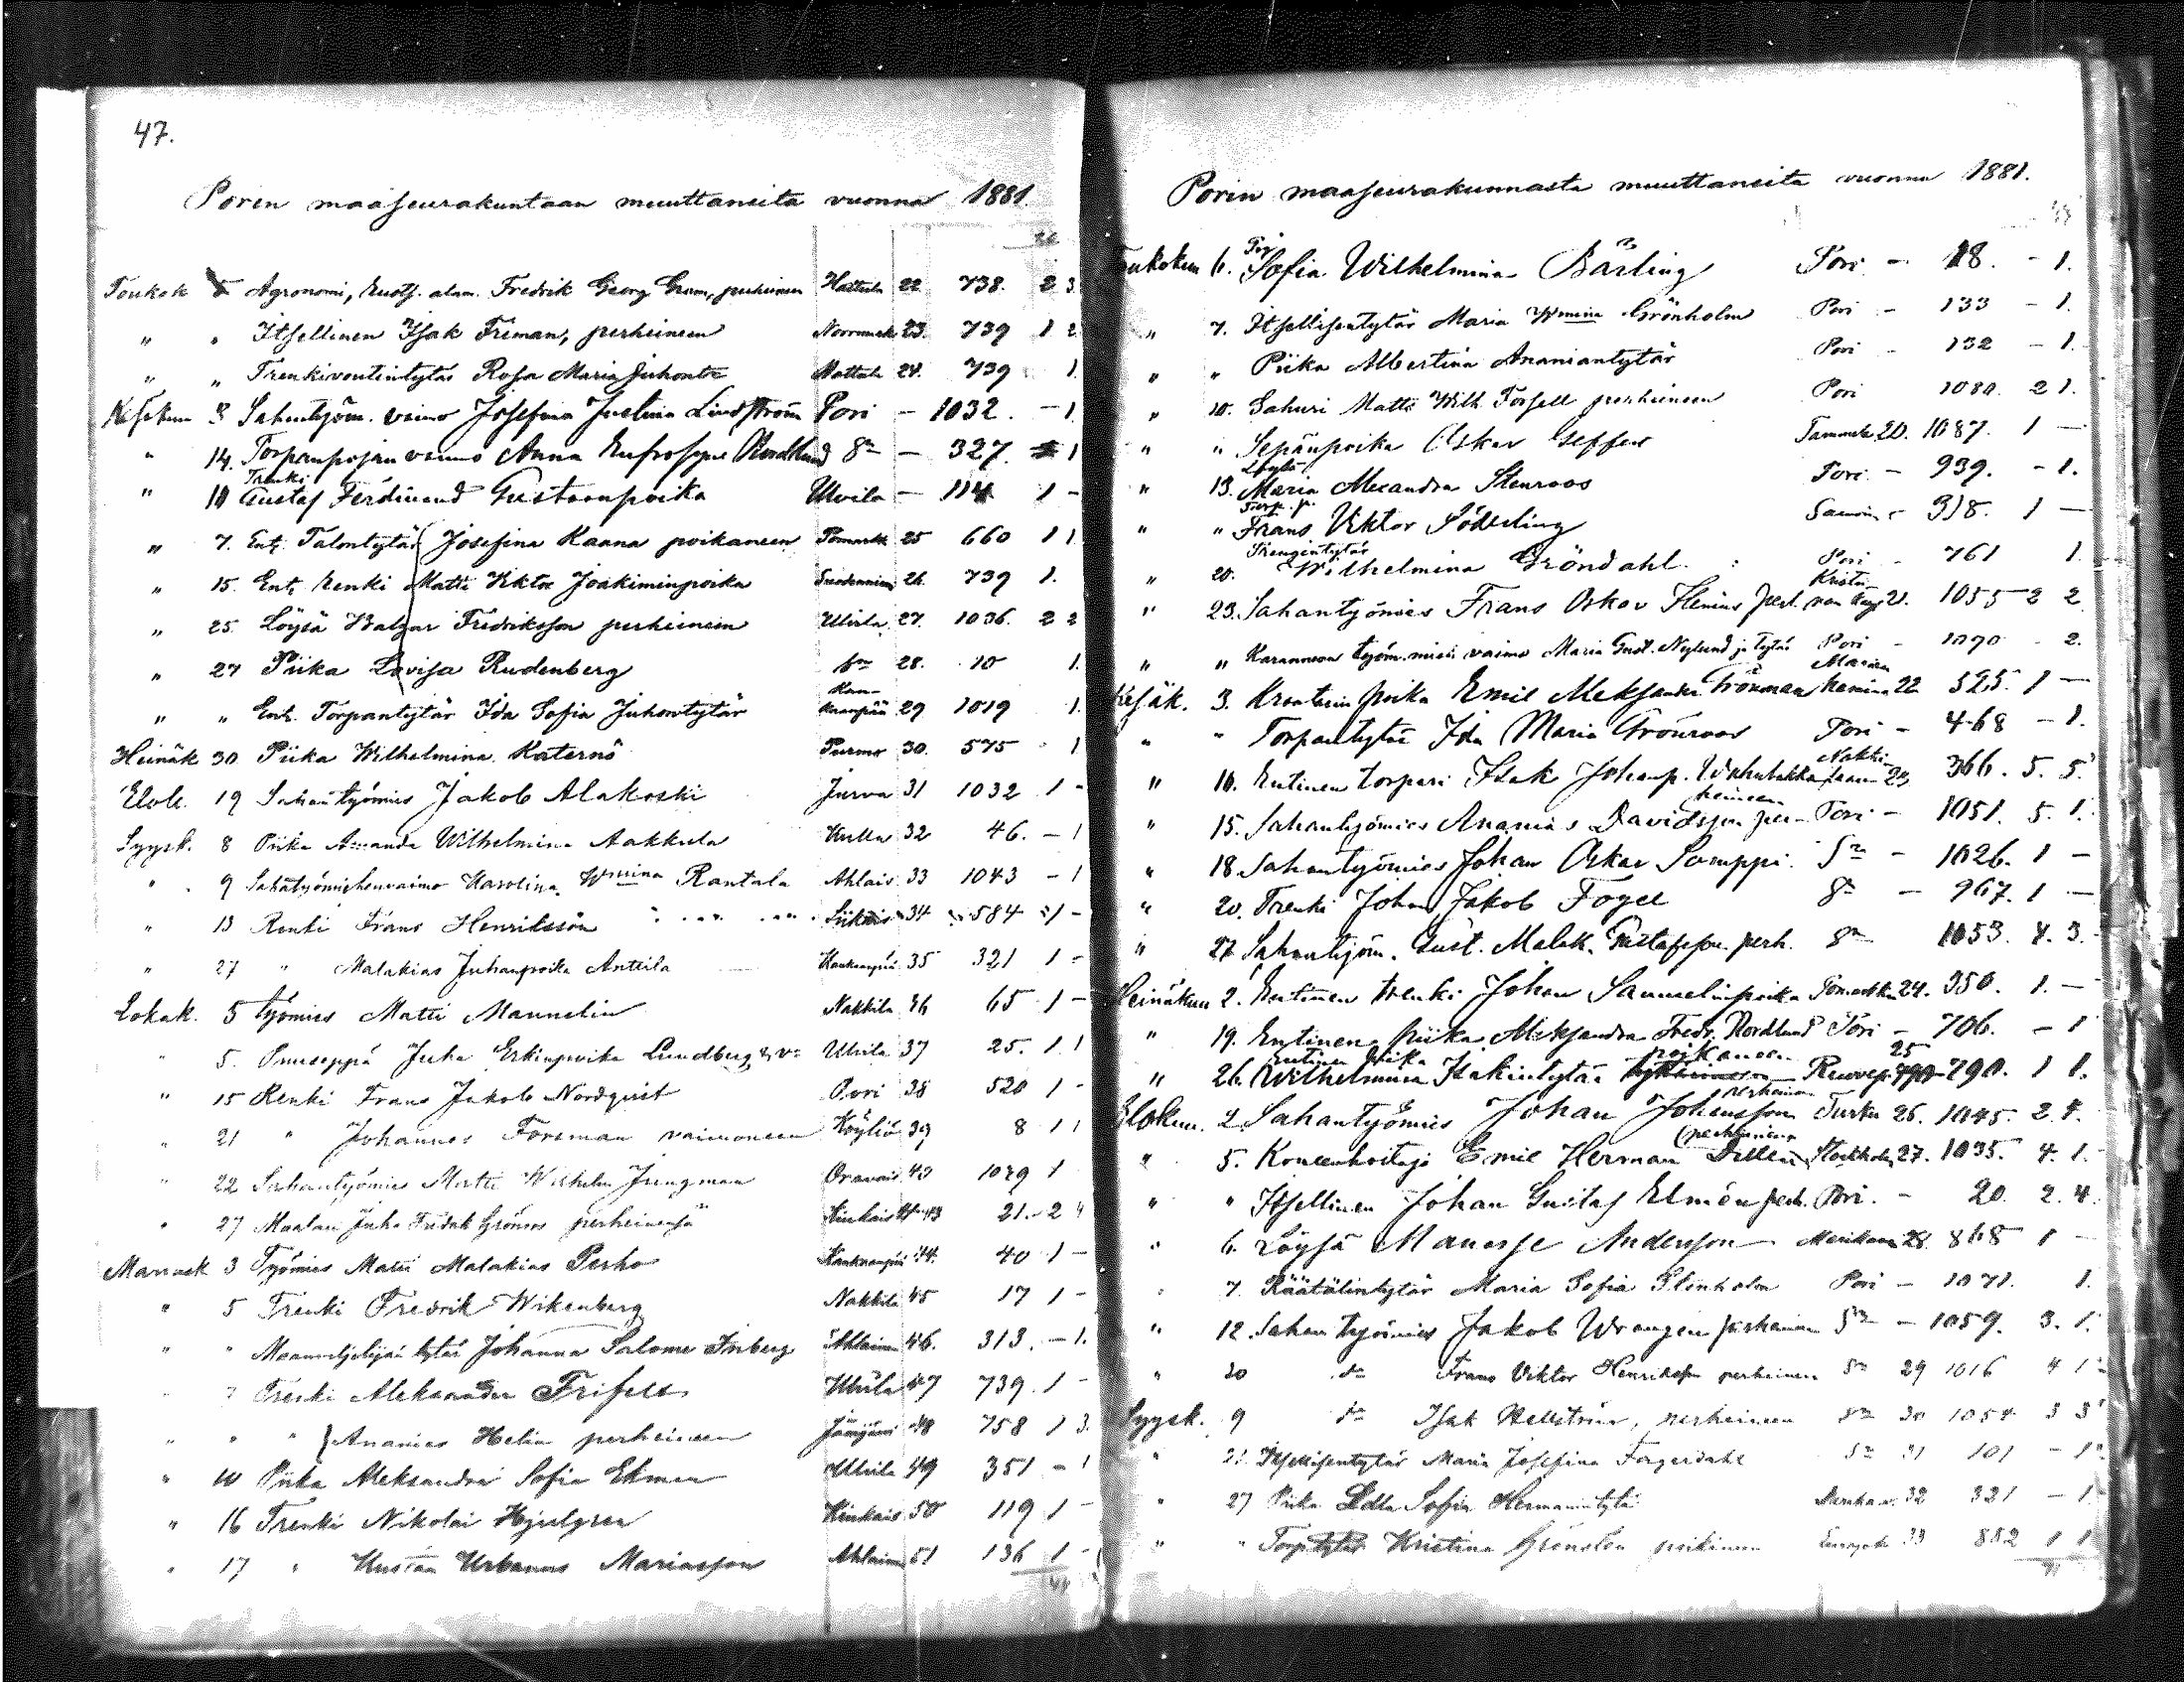 47.
Porin maaseurakuntaan muuttaneita vuonna 1881.
Toukok 5 Agronomi, Fredrik Georg perheineen Hattula 22 738. 2 3
" " Itsellinen Isak Friman, perheineen 23. 739 1 2
" " Trenkivoutintytär Rosa Maria Juhontr 24. 739 1.
Kesäkuun 8 Sahantyöm. vaimo Josefina Justina Lindström Pori - 1032. - 1
" 14. Torpanpojan vaimo Anna Eufrosyne Nordlund Sn - 327. 1
" 10 Trenki Gustaf Ferdinand Gustavinpoika Ulvila - 114 1 -
" 7. Ent. Talontytär Josefina Kaana poikaneen Pomark 25 660 1 1
" 15. Ent. renki Matti Viktor Joakiminpoika Suodenniemi 26. 739 1.
" 25. Löysä Fredriksson perheineen Ulvila 27. 1036. 2 2
" 27 Piika Lovisa Rudenberg Sn 28. 10 1.
" " Ent. Torpantytär Ida Sofia Juhontytär Kankaanpää 29 1019 1.
Heinäk 30 Piika Wilhelmina Katernö Purmo 30. 575 1
Elok. 19 Sahantyömies Jakob Alakoski Jurva 31 1032 1 -
Syysk. 8 Piika Amanda Wilhelmina Aakkula Kulla 32 46. - 1
" 9 Sahatyömiehenvaimo Karolina Wmina Rantala Ahlais 33 1043 - 1
" 13 Renki Frans Henriksson Siikais 34 584 1 -
" 27 " Malakias Juhanpoika Anttila Kankaanpää 35 321 1 -
Lokak. 5 työmies Matti Mannelin Nakkila 36 65 1 -
" 5. Puuseppä Juha Erkinpoika Lundberg & va Ulvila 37 25. 1. 1
" 15 Renki Frans Jakob Nordqvist Pori 38 520 1 -
" 21 " Johannes Forsman vaimoneen Köyliö 39 8 1 1
" 22 Sahantyömies Matti Wilhelm Jungman Oravais 42 1029 1
" 27 Maalari Juha Fredrik Grönroos perheinensä 43 21. - 2 4
Marrask 3 Työmies Matti Malakias Perho Kankaanpää 44. 40 1 -
" 5 Trenki Fredrik Wikenberg Nakkila 45 17 1 -
" " Maanviljelijän tytär Johanna Salome Ahlainen 46. 313. - 1.
" 7 Trenki Aleksander Frisell Ulvila 47 739. 1 -
" " " Ananias Helin perheineen Jämijärvi 48 758 1 3.
" 10 Piika Aleksandra Sofia Ekman Ulvila 49 351 - 1
" 16 Trenki Nikolai Hjulgren 50 119 1 -
" 17 " Kustaa Urbanus Mariasson Ahlainen 51 136 1 -
Porin maaseurakunnasta muuttaneita vuonna 1881.
Toukokuu 6. Sofia Wilhelmina Bärling Pori - 18. - 1.
" 7. Itsellisentytär Maria Wmina Grönholm Pori - 133 - 1.
" " Piika Albertina Ananiantytär Pori - 132 - 1.
" 10. Sahuri Matti Wilh. Forsell perheineen Pori 1080. 2 1.
" " Sepänpoika Oskar Geffer 20. 1087. 1 -
" 13. Löysä Maria Alexandra Stenroos Pori - 939. - 1.
" " Torp. p. Frans Viktor Söderling 318. 1 -
" 20. Trengintytär Wilhelmina Gröndahl Pori - 761 1.
" 23. Sahantyömies Frans Oskar Stenius perh. Kristiinankaup 21. 1055 2 2
" " työm. miehen vaimo Maria Gust. Nylund ja tytär Pori - 1090 - 2.
Kesäk. 3. poika Emil Aleksander Grönman 22 525. 1 -
" " Torpantytär Ida Maria Grönroos Pori - 468 - 1.
" 10. Entinen torpari Isak Johanp. 23 366. 5. 5.
" 15. Sahantyömies Ananias Davidsson perheineen Pori - 1051. 5. 1.
" 18. Sahantyömies Johan Oskar Samppi Sn - 1026. 1 -
" 20. Trenki Johan Jakob Fogel Sn - 967. 1 -
" 27 Sahantyöm. Gust. Malak. Gustafsson perh. Sn 1053. 4. 3.
Heinäkuu 2. Entinen trenki Johan Samuelinpoika Pomarkku 24. 350. 1. -
" 19. Entinen piika Aleksandra Fredr. Nordlund Pori - 706. - 1
" 26. Entinen piika Wilhelmina Isakintytär poikaneen 25 790. 1 1.
Elokuu. 2. Sahantyömies Johan Johansson perheineen Turku 26. 1045. 2. 4.
" 5. Koneenhoitaja Emil Herman perheineen Stockholm 27. 1035. 4. 1.
" " Itsellinen Johan Gustaf Elmén perh. Pori. - 20. 2. 4.
" 6. Löysä Manasse Andersson 28. 868 1 -
" 7. Räätälintytär Maria Sofia Stenholm Pori - 1071. 1.
" 12. Sahan työmies Jakob Wrangen perheineen Sn - 1059. 3. 1.
" 20 dn Frans Viktor Henriksson perheineen Sn 29 1016 4 1
Syysk. 9 dn Isak Hellström, perheineen Sn 30 1054 3 3
" 21. Itsellisentytär Maria Josefina Forgerdahl Sn 31 101 - 1
" 27 Piika Edla Sofia Hermanintytär 32 321 - 1
" " Torp. tytär Kristina Grönsten poikineen 33 882 1 1